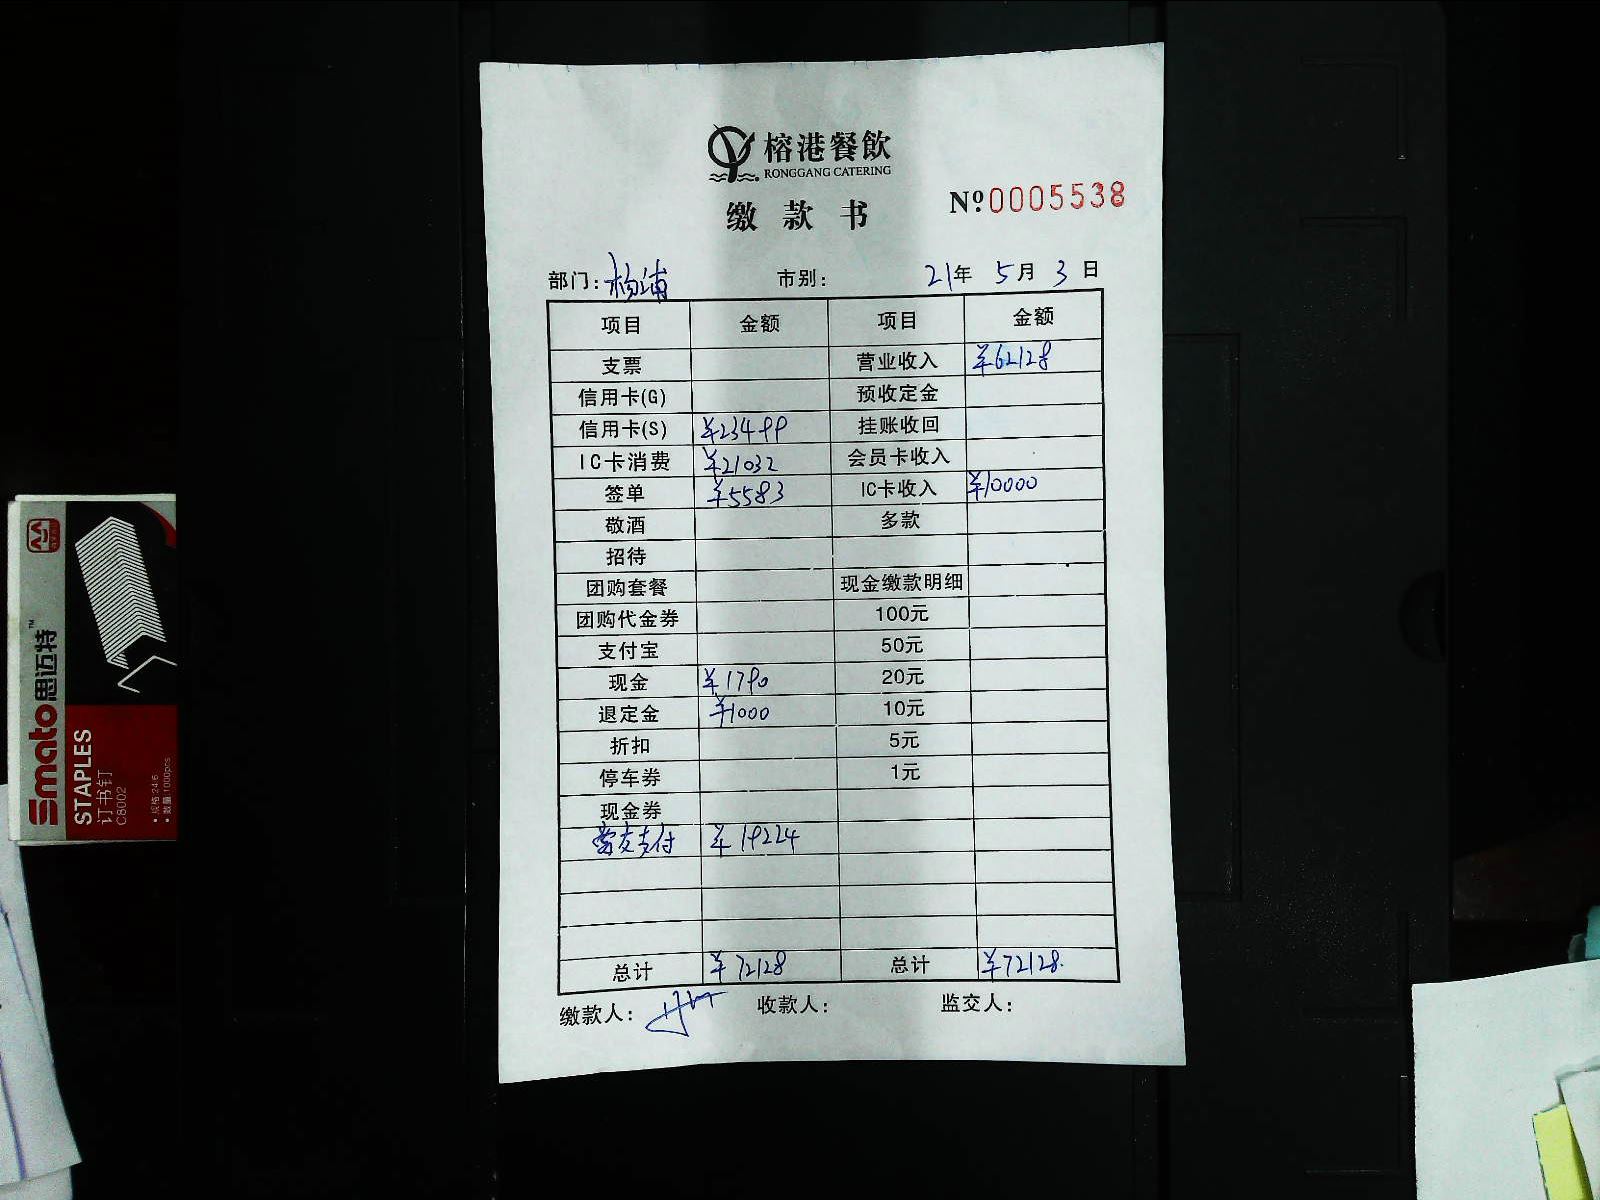 榕港餐飲
RONGGANG CATERING
缴款书
Nº0005538
部门：杨浦 市别： 21年 5月 3日
项目 金额 项目 金额
支票 营业收入 ¥62128
信用卡(G) 预收定金
信用卡(S) ¥23499 挂账收回
IC卡消费 ¥21032 会员卡收入
签单 ¥5583 IC卡收入 ¥10000
敬酒 多款
招待
团购套餐 现金缴款明细
团购代金券 100元
支付宝 50元
现金 ¥1790 20元
退定金 ¥1000 10元
折扣 5元
停车券 1元
现金券
支付 ¥19224
总计 ¥72128 总计 ¥72128.
缴款人： 收款人： 监交人：
Smato思迈特™
STAPLES
订书钉
C8002
•规格:24/6
•数量:1000pcs